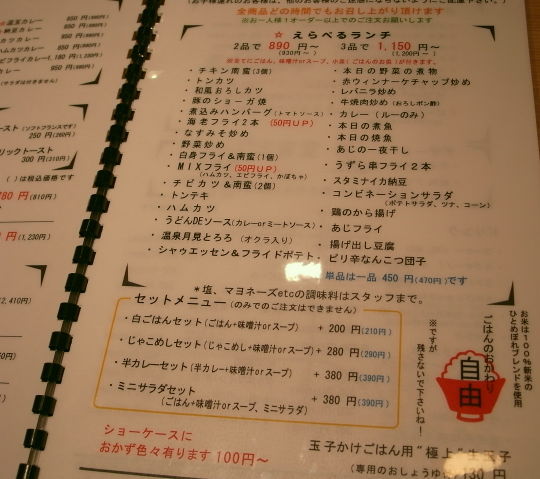 全商品どの時間でもお召し上がり頂けます
※お一人様1オーダー以上でのご注文お願いします
☆ えらべるランチ
2品で 890 円～ 3品で 1,150 円～
(930円～) (1,200円～)
※全てにごはん、味噌汁orスープ、小鉢1
・チキン南蛮(3個)
・トンカツ
・和風おろしカツ
・豚のショーガ焼
・煮込みハンバーグ(トマトソース)
・海老フライ2本 (50円UP)
・なすみそ炒め
・野菜炒め
・白身フライ&南蛮(1個)
・MIXフライ(50円UP)
(ハムカツ、エビフライ、かぼちゃ)
・チビカツ&南蛮(2個)
・トンテキ
・ハムカツ
・うどんDEソース(カレーorミートソース)
・温泉月見とろろ (オクラ入り)
・シャウエッセン&フライドポテト
・本日の野菜の煮物
・赤ウィンナーケチャップ炒め
・レバニラ炒め
・牛焼肉炒め(おろしポン酢)
・カレー (ルーのみ)
・本日の煮魚
・本日の焼魚
・あじの一夜干し
・うずら串フライ2本
・スタミナイカ納豆
・コンビネーションサラダ
(ポテトサラダ、ツナ、コーン)
・鶏のから揚げ
・あじフライ
・揚げ出し豆腐
・ピリ辛なんこつ団子
単品は一品 450 円(470円)です
*塩、マヨネーズetcの調味料はスタッフまで。
セットメニュー(のみでのご注文はできません)
・白ごはんセット(ごはん+味噌汁orスープ) + 200 円(210円)
・じゃこめしセット(じゃこめし+味噌汁orスープ) + 280 円(290円)
・半カレーセット(半カレー+味噌汁orスープ) + 380 円(390円)
・ミニサラダセット + 380 円(390円)
(ごはん+味噌汁orスープ、ミニサラダ)
お米は100%新米の
ひとめぼれブレンドを使用
ごはんのおかわり
自由
※ですが、
残さないで下さいね!
ショーケースに
おかず色々有ります 100円～
玉子かけごはん用"極上"
(専用のおしょうゆ
130 円
ースト(ソフトフランスです)
250 円(260円)
リックトースト
300 円(310円)
( )は税込価格です
780 円(810円)
円(1,230円)